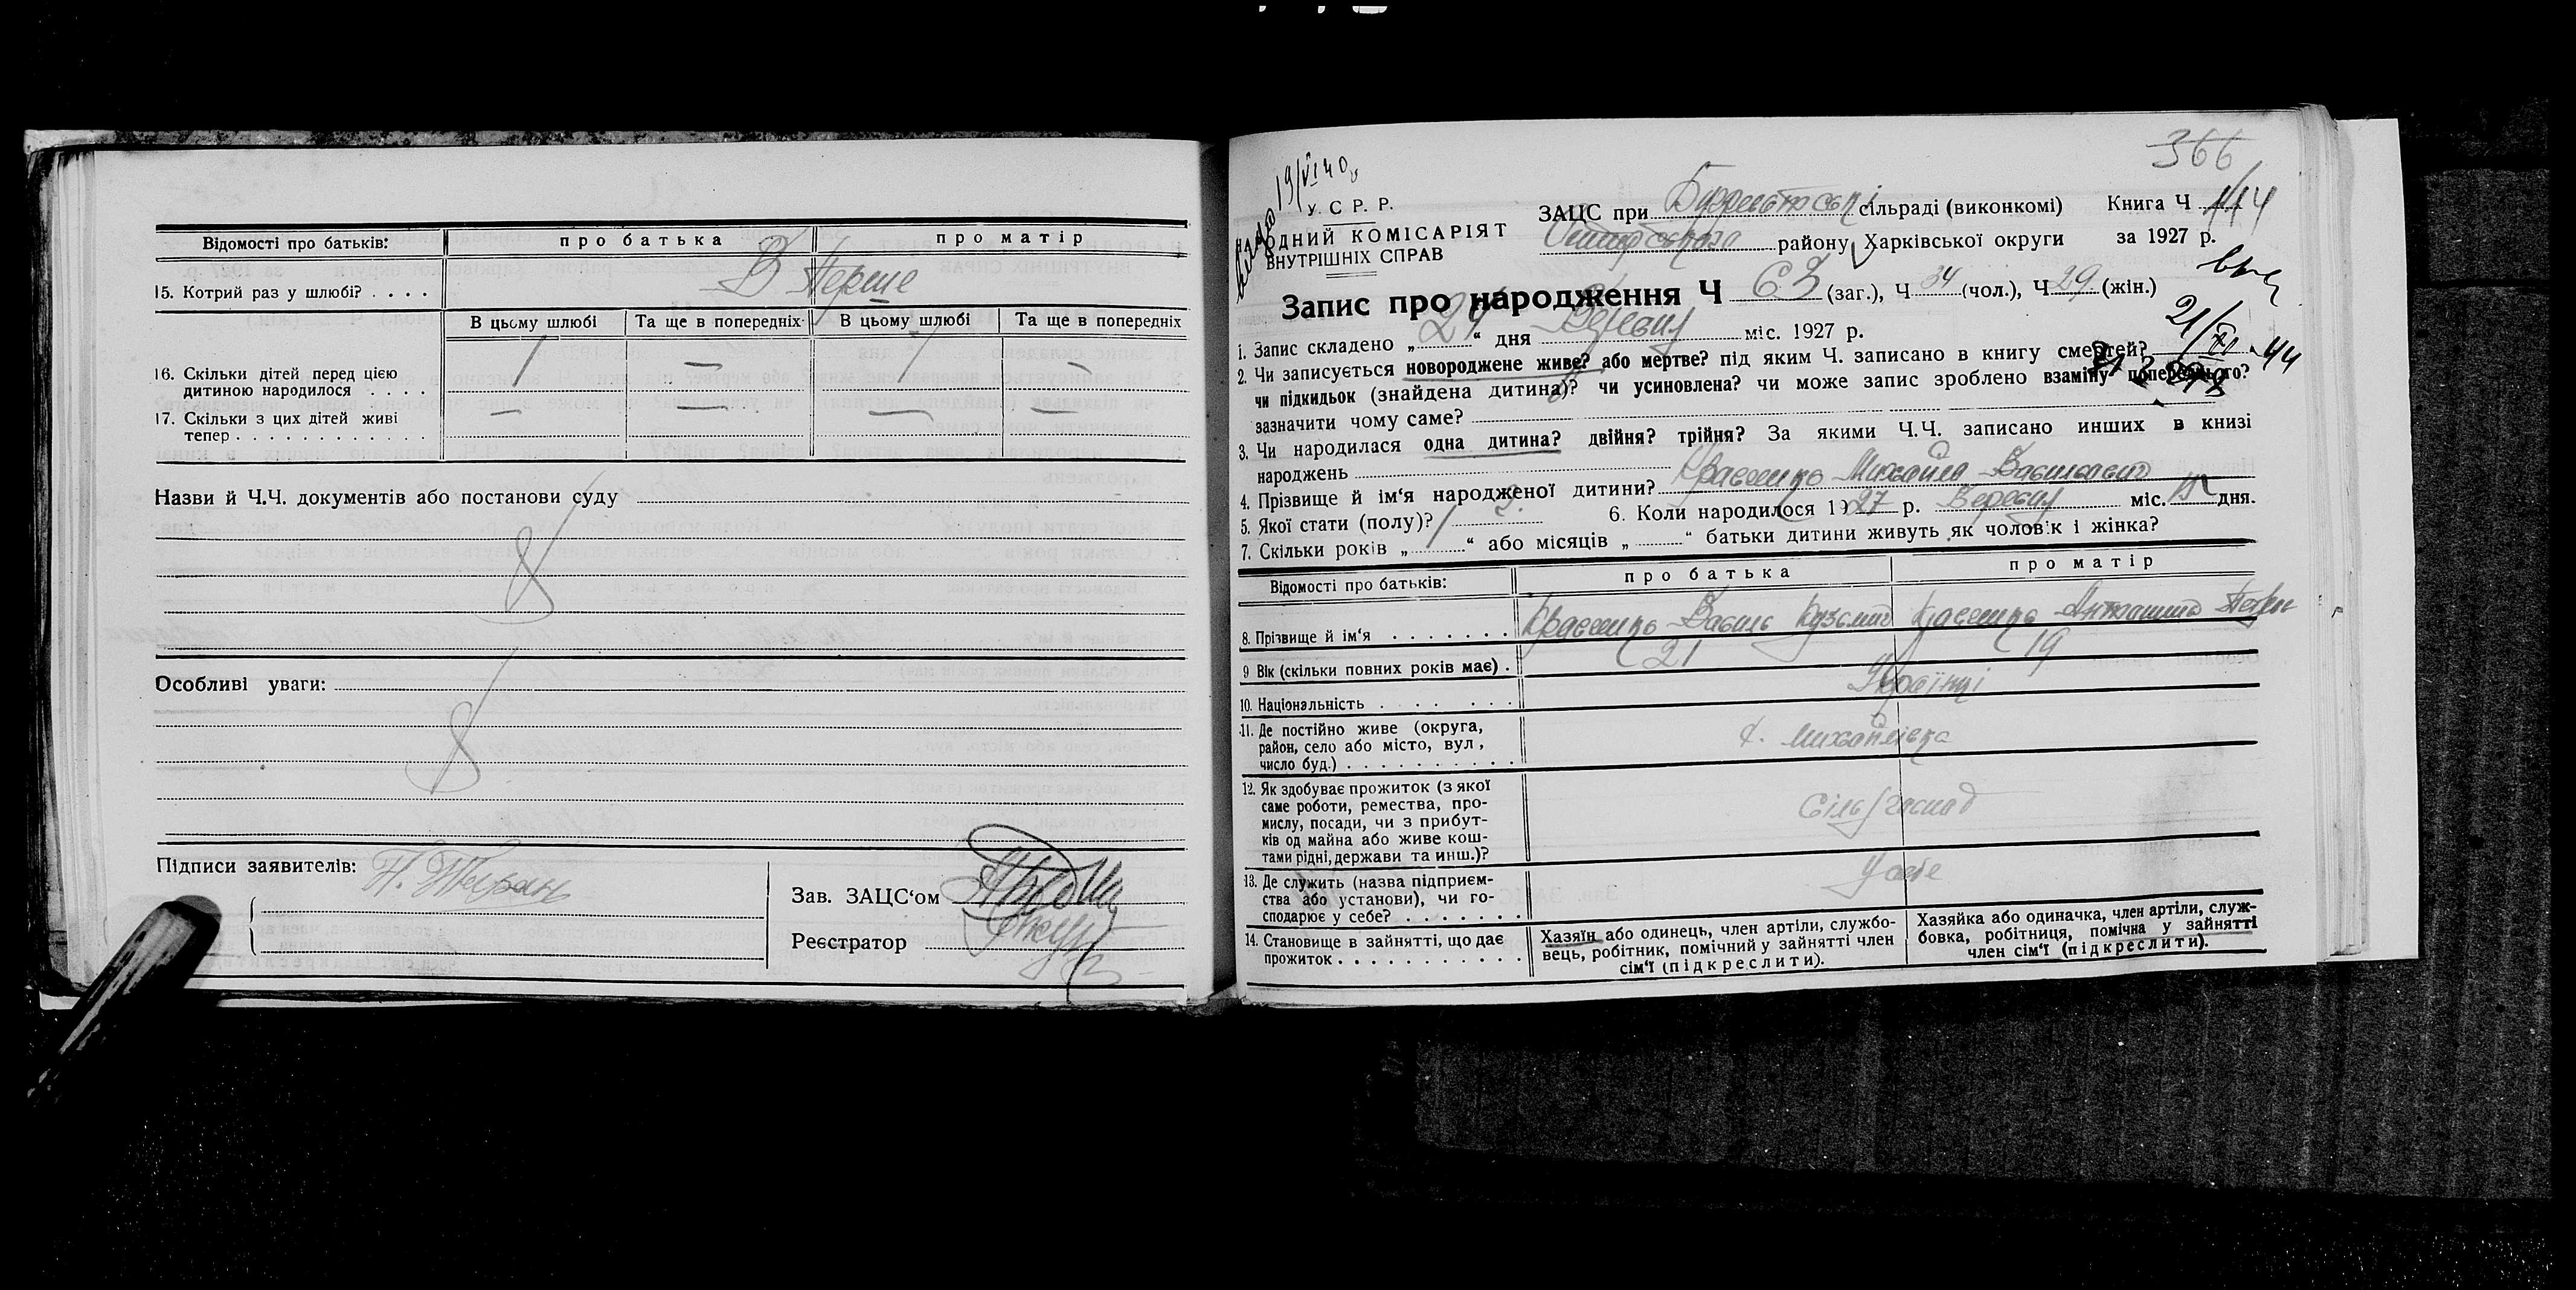 Відомості про батьків: про батька про матір
15. Котрий раз у шлюбі? . . . . В Перше
В цьому шлюбі Та ще в попередніх В цьому шлюбі Та ще в попередніх
16. Скільки дітей перед цією
дитиною народилося . . . . 1 — 1 —
17. Скільки з цих дітей живі
тепер . . . . . . . . . . . . — — — —
Назви й Ч.Ч. документів або постанови суду
Особливі уваги:
Підписи заявителів:
Зав. ЗАЦС‘ом
Реєстратор
366
19/VI 40
У. С Р. Р.
НАРОДНИЙ КОМІСАРІЯТ
ВНУТРІШНІХ СПРАВ
ЗАЦС при сільраді (виконкомі) Книга Ч 114
району Харківської округи за 1927 р.
Запис про народження Ч 63 (заг.), Ч 34 (чол.), Ч 29 (жін.)
21/XI 44
1. Запис складено „ 24 “ дня Вересня міс. 1927 р.
2. Чи записується новороджене живе? або мертве? під яким Ч. записано в книгу смертей?
чи підкидьок (знайдена дитина)? чи усиновлена? чи може запис зроблено взаміну попереднього?
зазначити чому саме?
3. Чи народилася одна дитина? двійня? трійня? За якими Ч.Ч. записано инших в книзі
народжень
4. Прізвище й ім‘я народженої дитини? Михайло Васильович
5. Якої стати (полу)? Ч. 6. Коли народилося 1927 р. Вересня міс. дня.
7. Скільки років „ “ або місяців „ “ батьки дитини живуть як чоловік і жінка?
Відомості про батьків: про батька про матір
8. Прізвище й ім‘я . . . . . . . Василь Кузьмич
9 Вік (скільки повних років має) . 21 19
10. Національність . . . . . . . Українці
11. Де постійно живе (округа,
район, село або місто, вул,
число буд.) . . . . . . . . . . х. Михайлівка
12. Як здобуває прожиток (з якої
саме роботи, ремества, про-
мислу, посади, чи з прибут-
ків од майна або живе кош-
тами рідні, держави та инш.)? Сільгоспод
13. Де служить (назва підприєм-
ства або установи), чи го-
сподарює у себе? . . . . . . . У себе
14. Становище в зайнятті, що дає
прожиток . . . . . . . . . . .
Хазяїн або одинець, член артіли, службо-
вець, робітник, помічний у зайнятті член
сім‘ї (підкреслити).
Хазяйка або одиначка, член артіли, служ-
бовка, робітниця, помічна у зайнятті
член сім‘ї (підкреслити).